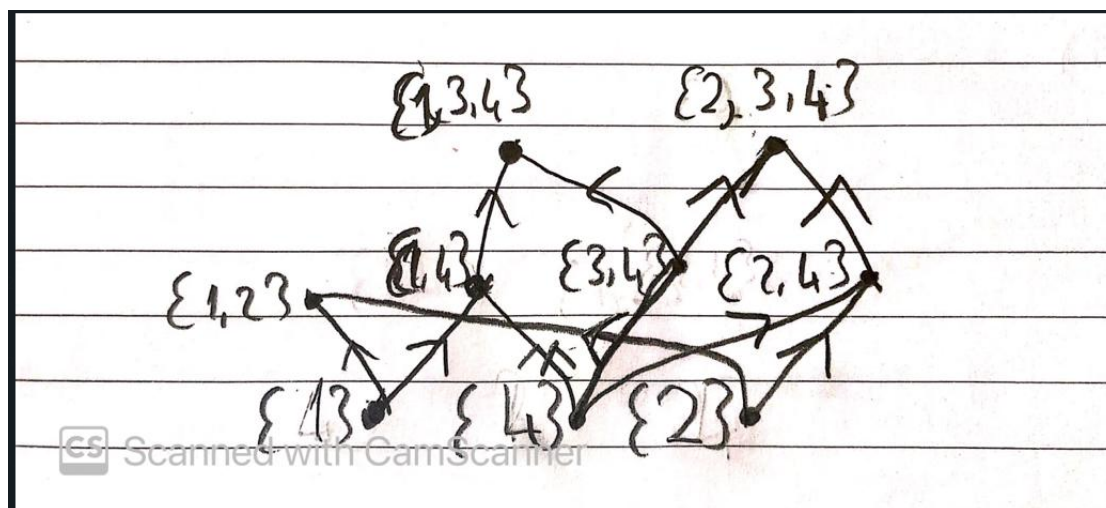 {1,3,4} {2,3,4}
{1,4} {3,4} {2,4}
{1,2}
{1} {4} {2}
CS Scanned with CamScanner